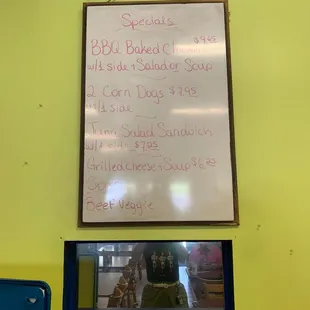 Specials
BBQ Baked Chicken $9.95
w/1 side + Salad or Soup
2 Corn Dogs $7.95
w/1 side
Tuna Salad Sandwich
w/1 side $7.95
Grilled Cheese + Soup $6.95
Beef Veggie